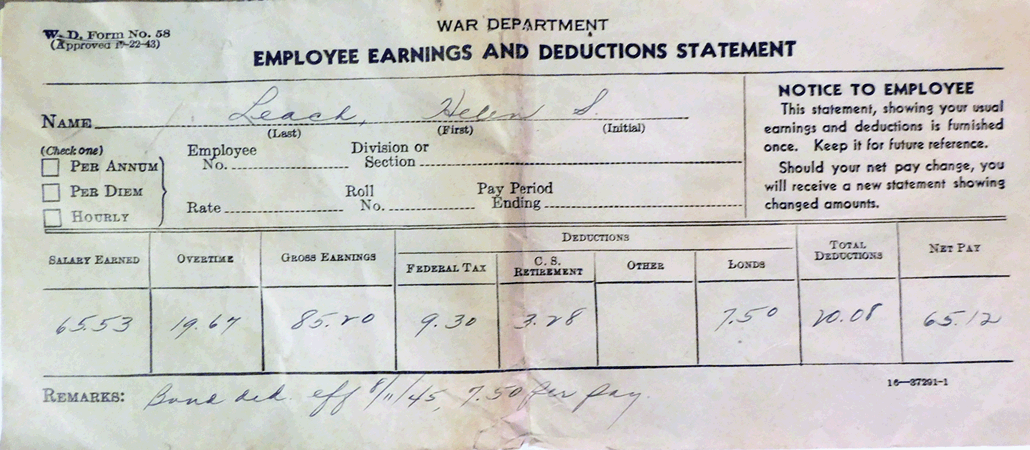 W. D. Form No. 58
(Approved 12-22-43)
WAR DEPARTMENT
EMPLOYEE EARNINGS AND DEDUCTIONS STATEMENT
NAME Leach, Helen S.
(Last) (First) (Initial)
(Check one)
PER ANNUM
PER DIEM
HOURLY
Employee No.
Division or Section
Rate
Roll No.
Pay Period Ending
NOTICE TO EMPLOYEE
This statement, showing your usual
earnings and deductions is furnished
once. Keep it for future reference.
Should your net pay change, you
will receive a new statement showing
changed amounts.
DEDUCTIONS
SALARY EARNED OVERTIME GROSS EARNINGS FEDERAL TAX C. S. RETIREMENT OTHER LONDS TOTAL DEDUCTIONS NET PAY
65.53 19.67 85.20 9.30 3.28 7.50 20.08 65.12
REMARKS: Bond ded. eff 8/11/45, 7.50 per pay.
16—27291-1